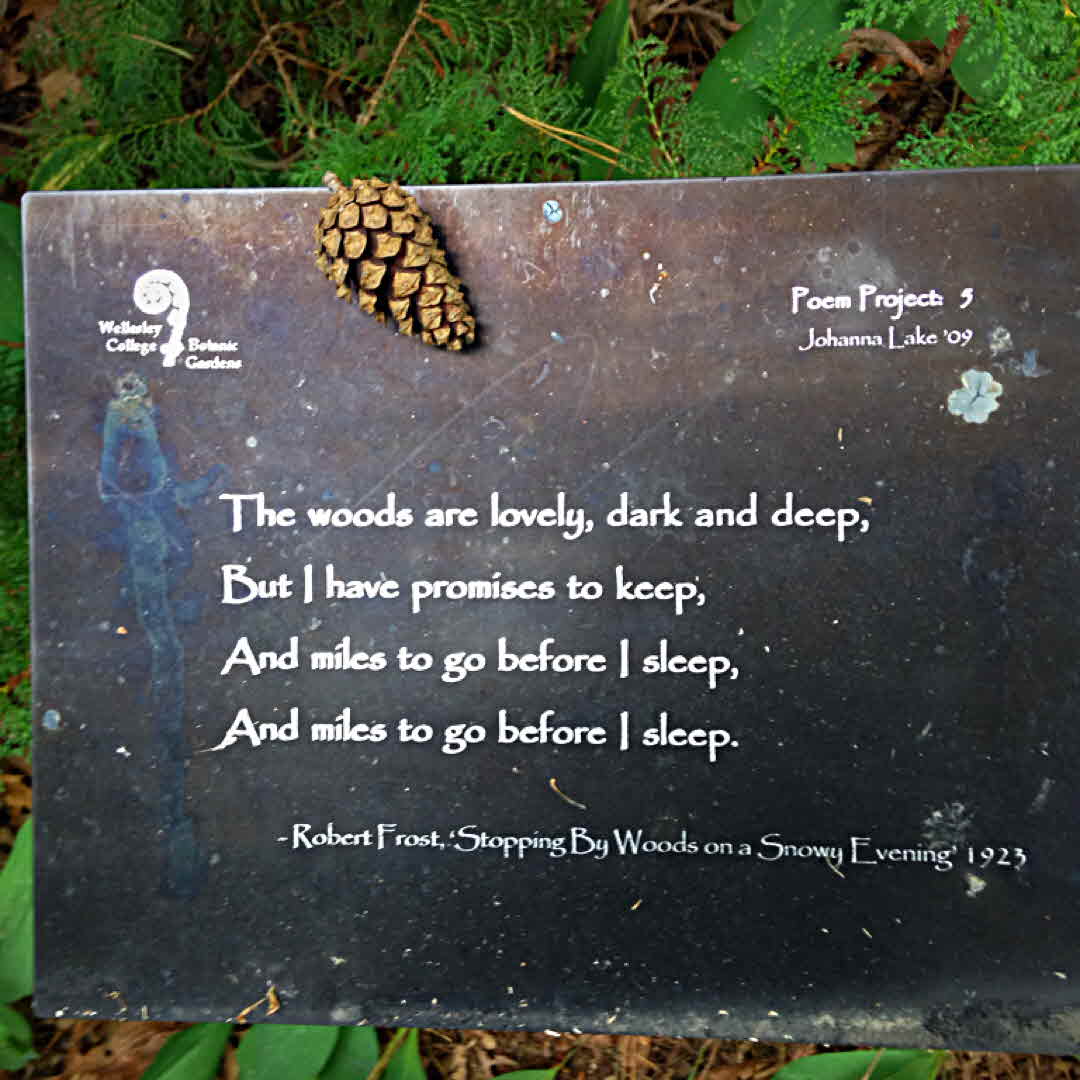 Wellesley
College Botanic
Gardens
Poem Project: 5
Johanna Lake '09
The woods are lovely, dark and deep,
But I have promises to keep,
And miles to go before I sleep,
And miles to go before I sleep.
- Robert Frost, 'Stopping By Woods on a Snowy Evening' 1923